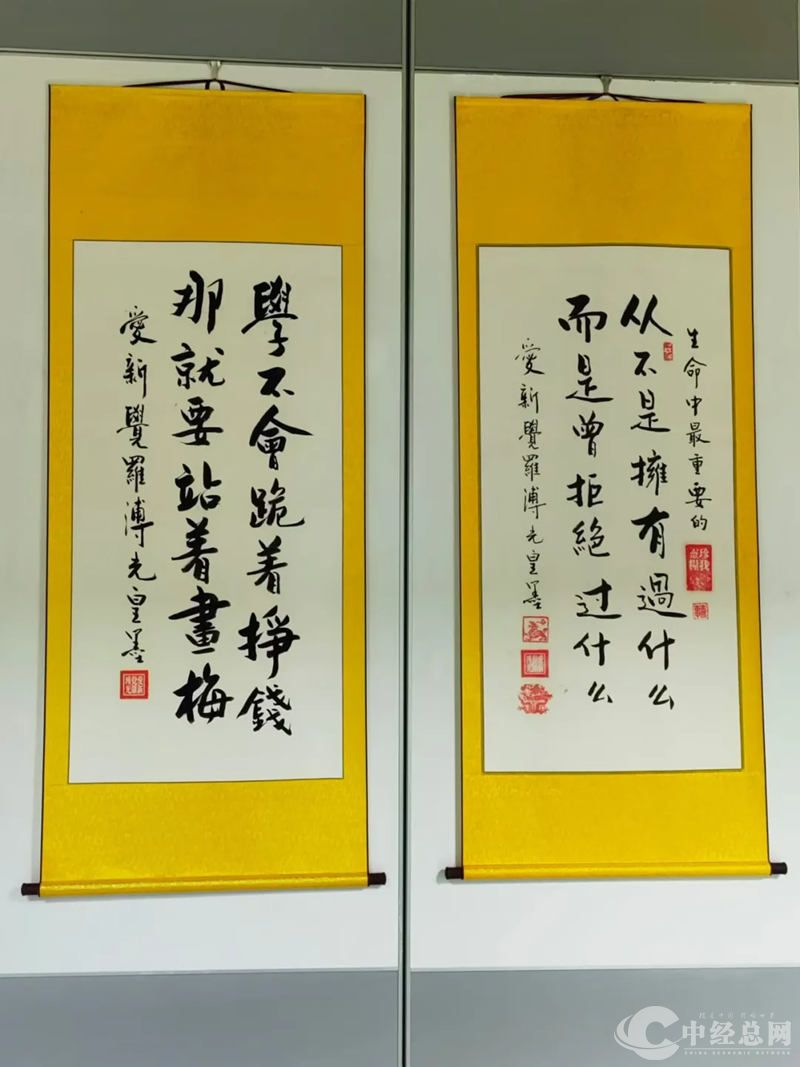 生命中最重要的
从不是擁有過什么
而是曾拒絶过什么
愛新覺羅溥光皇墨
學不會跪着掙錢
那就要站着畫梅
愛新覺羅溥光皇墨
中经总网
CHINA ECONOMIC NETWORK